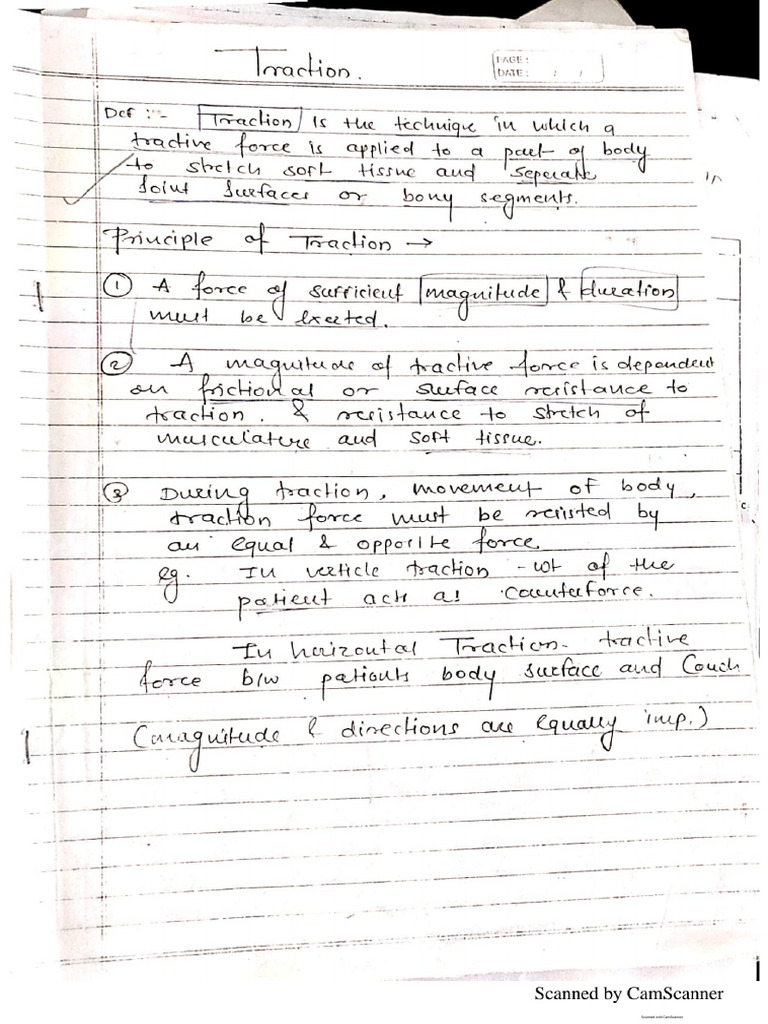 Traction.
PAGE:
DATE: / /
Def :- Traction is the technique in which a
tractive force is applied to a part of body
to stretch soft tissue and seperate
Joint surfaces or bony segments.
Principle of Traction →
① A force of sufficient magnitude & duration
must be exerted.
② A magnitude of tractive force is dependent
on frictional or surface resistance to
traction. & resistance to stretch of
musculature and soft tissue.
③ During traction, movement of body,
traction force must be resisted by
an equal & opposite force.
eg. In verticle traction - wt of the
patient acts as counterforce.
In horizontal Traction - tractive
force b/w patients body surface and Couch
(magnitude & directions are equally imp.)
Scanned by CamScanner
Scanned with CamScanner